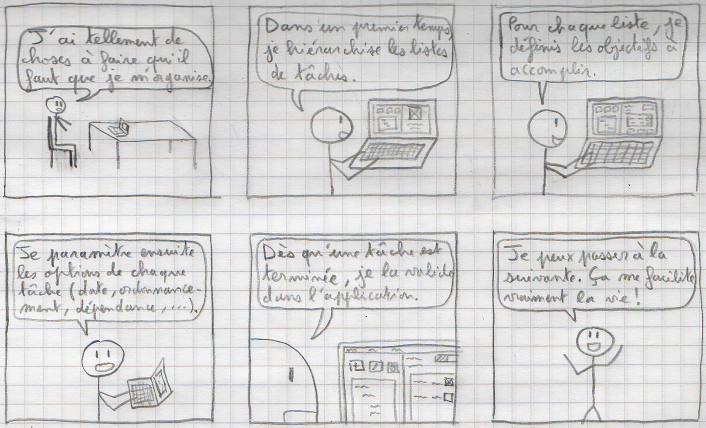 J'ai tellement de
choses à faire qu'il
faut que je m'organise.
Dans un premier temps,
je hiérarchise les listes
de tâches.
Pour chaque liste, je
définis les objectifs à
accomplir.
Je paramètre ensuite
les options de chaque
tâche (date, ordonnance-
ment, dépendance, ...).
Dès qu'une tâche est
terminée, je la valide
dans l'application.
Je peux passer à la
suivante. Ça me facilite
vraiment la vie!